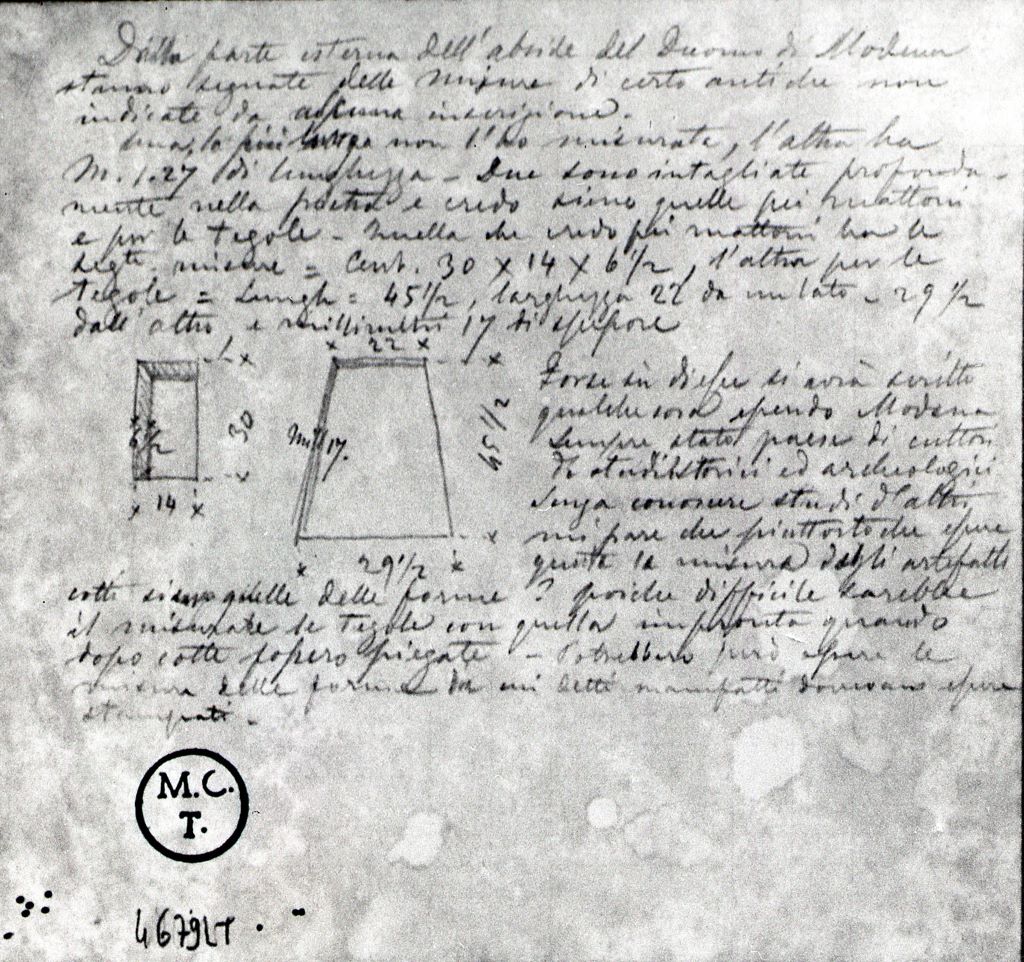 Dalla parte esterna dell'abside del Duomo di Modena
stanno segnate delle misure di certo antiche non
indicate da alcuna inscrizione.
Una, la più lunga non l'ho misurata, l'altra ha
M. 1.27 di lunghezza - Due sono intagliate profonda-
mente nella pietra e credo siano quelle pei mattoni
e per le tegole - Quella che credo pei mattoni ha le
segti misure = Cent. 30 X 14 X 6 1/2, l'altra per le
tegole = Lungh = 45 1/2, larghezza 22 da un lato - 29 1/2
dall'altro e millimetri 17 di spessore
22
6 1/2
30
14
Mill 17.
45 1/2
29 1/2
Forse su di esse si avrà scritto
qualche cosa essendo Modena
sempre stato paese di cultori
di studi storici ed archeologici
Senza conoscere studi d'altri
mi pare che piuttosto che essere
questa la misura degli artefatti
cotti siano quelle delle forme? poiche difficile sarebbe
il misurare le tegole con quella impronta quando
dopo cotte fossero piegate - Potrebbero però essere le
misure delle forme da cui detti manifatti dovevano essere
stampati.
M.C.
T.
4679LT